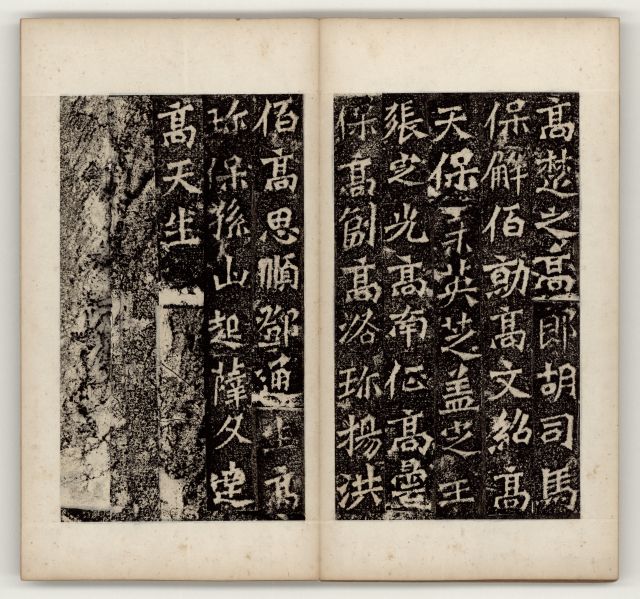 高楚之高郎胡司馬
保解佰勍高文紹高
天保英芝盖芝王
張芝光高南征高曇
保高副高洛珎揚洪
佰高思順鄧通高
珎保孫山起薩文達
高天生